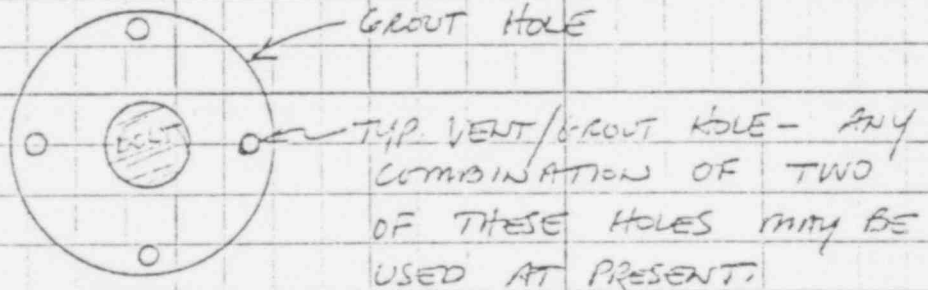 GROUT HOLE
BOLT
TYP. VENT/GROUT HOLE - ANY
COMBINATION OF TWO
OF THESE HOLES MAY BE
USED AT PRESENT.